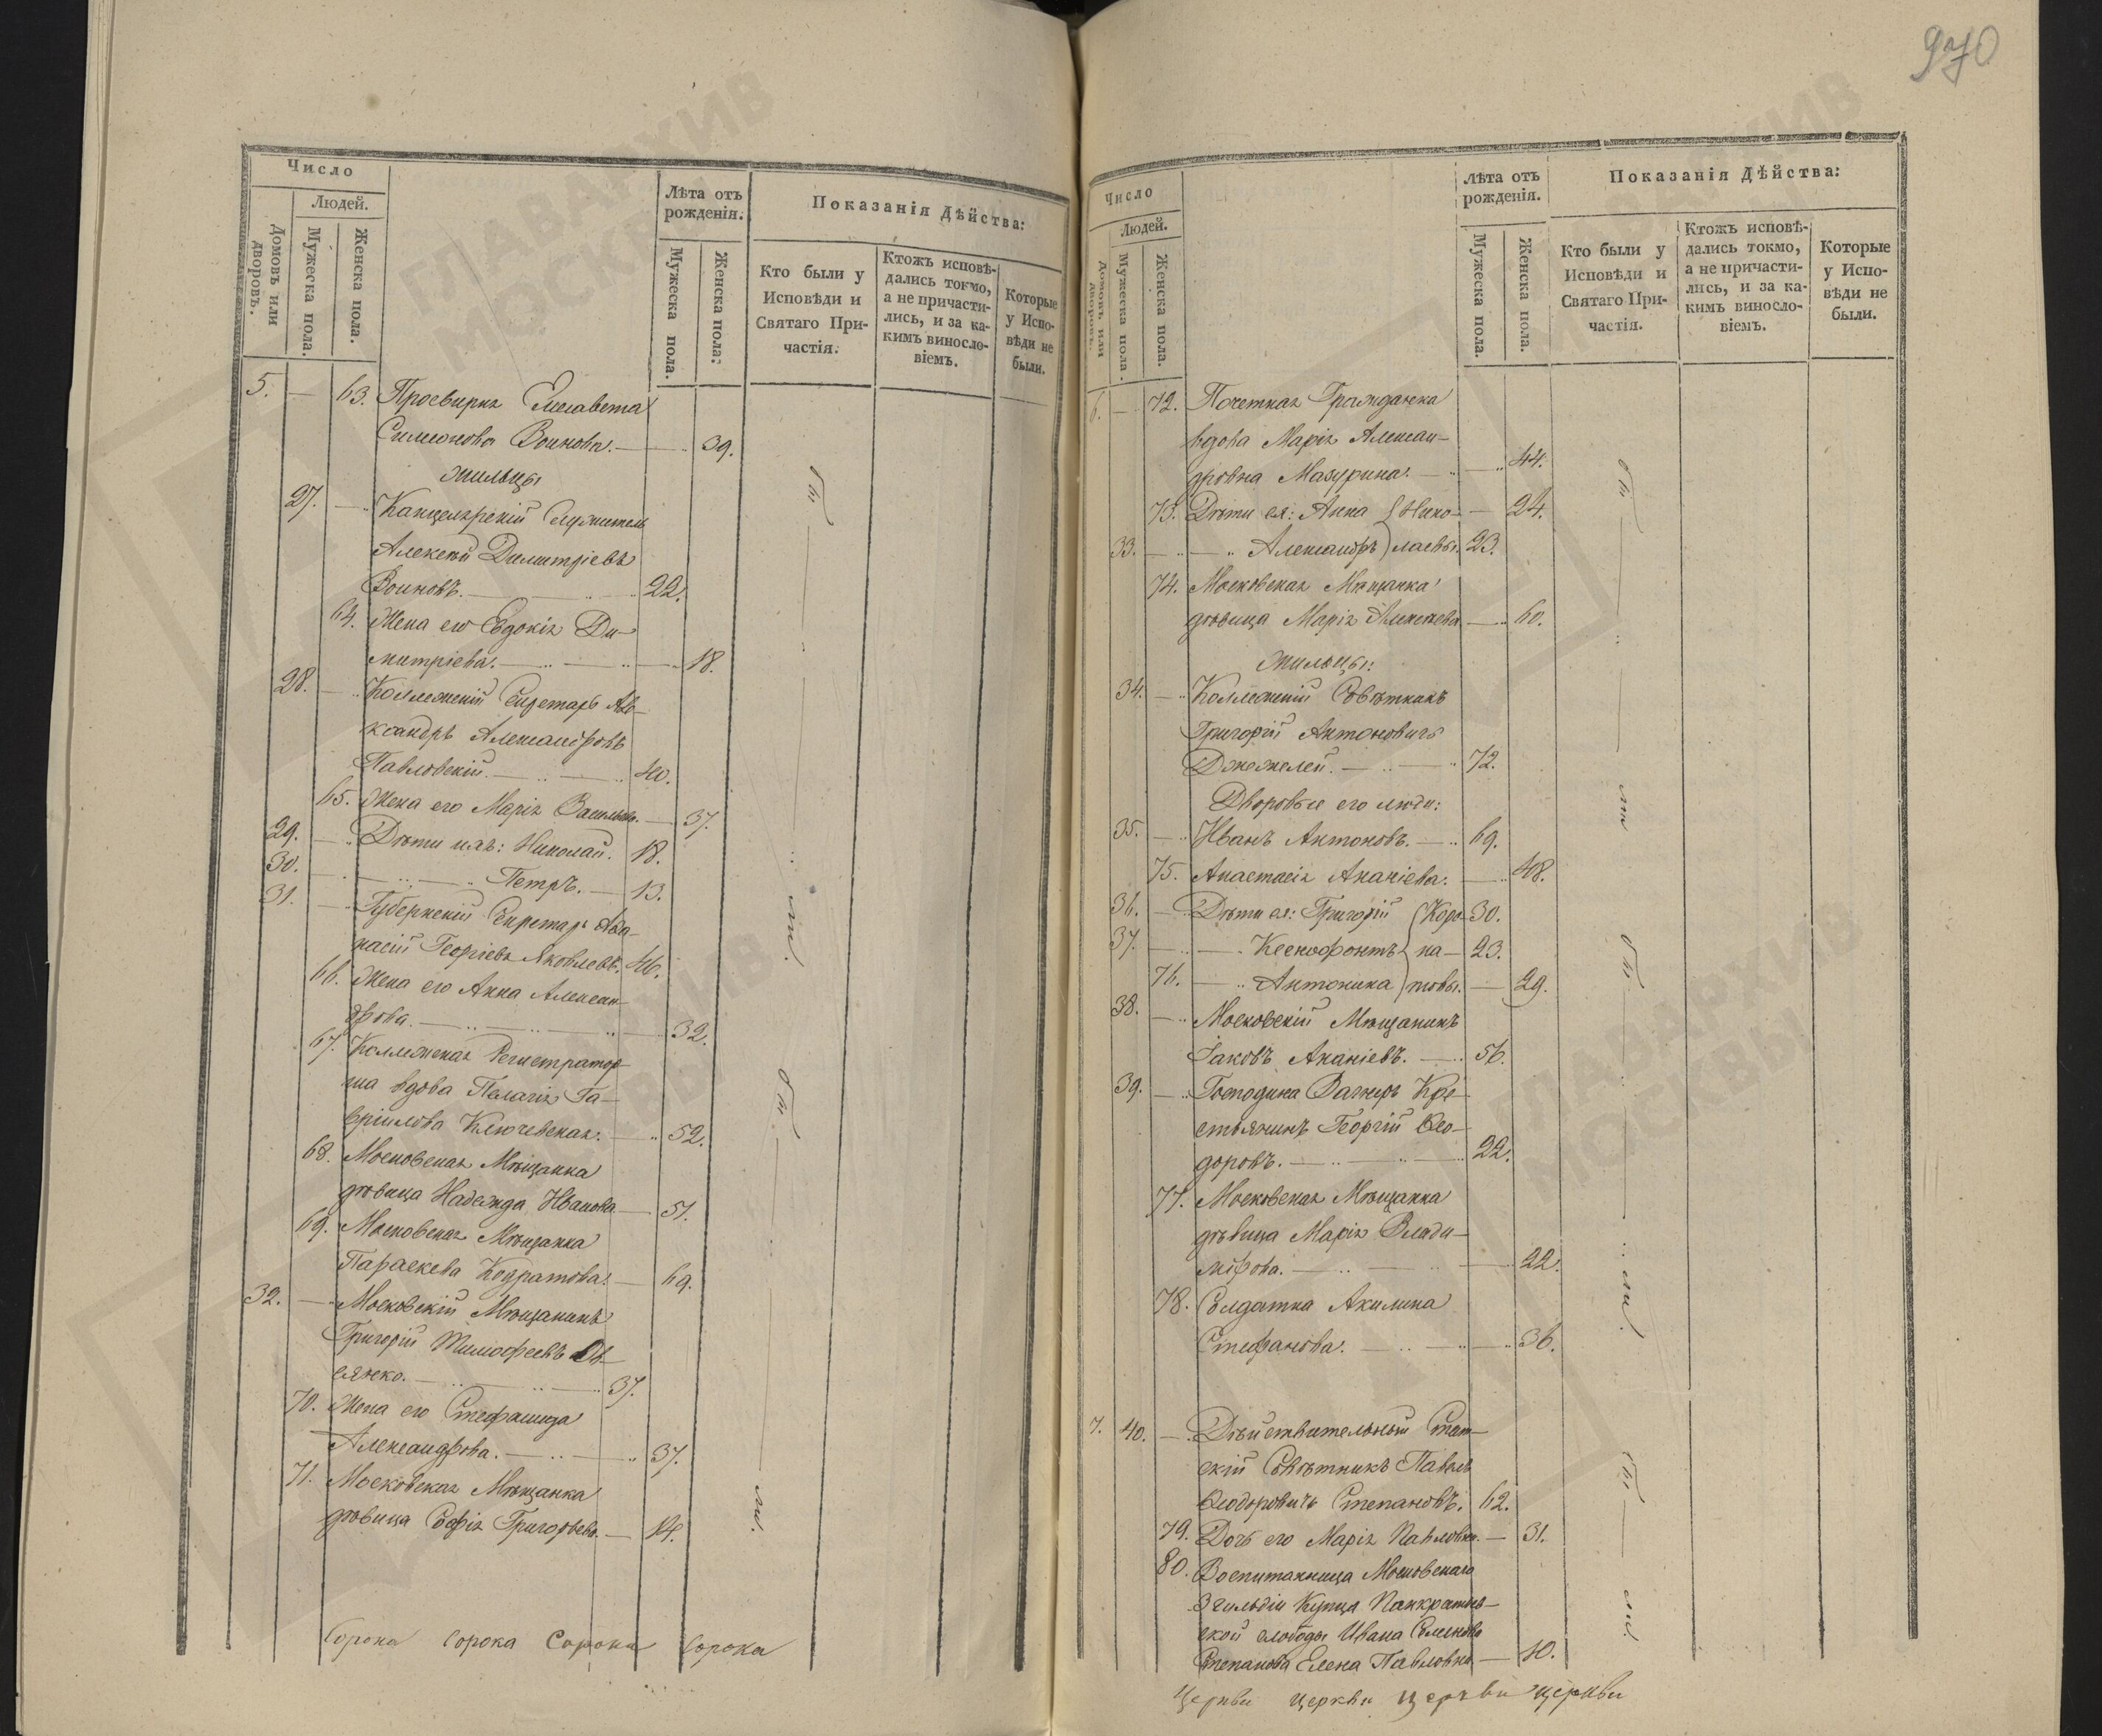 970
Число
Людей.
Домовъ или дворовъ.
Мужеска пола.
Женска пола.
Лѣта отъ рожденія.
Мужеска пола.
Женска пола:
Показанія Дѣйства:
Кто были у Исповѣди и Святаго Причастія.
Ктожъ исповѣдались токмо, а не причастились, и за какимъ винословіемъ.
Которые у Исповѣди не были.
5. 63. Просвирня Елисавета
Симеонова Воинова. 39.
Жильцы
27. Канцелярскій Служитель
Алексѣй Димитріевъ
Воиновъ. 22.
64. Жена его Евдокія Ди-
митріева. 18.
28. Коллежскій Секретарь Але-
ксандръ Александровъ
Павловскій. 40.
65. Жена его Марія Васильева. 37.
29. Дѣти ихъ: Николай. 18.
30. Петръ. 13.
31. Губернскій Секретарь Аѳа-
насій Георгіевъ Яковлевъ. 46.
66. Жена его Анна Алексан-
дрова. 32.
67. Коллежская Регистратор-
ша вдова Пелагія Га-
вріилова Ключевская. 52.
68. Московская Мѣщанка
дѣвица Надежда Иванова 51.
69. Московская Мѣщанка
Параскева Кодратова. 69.
32. Московскій Мѣщанинъ
Григорій Тимофеевъ
37.
70. Жена его Стефанида
Александрова. 37.
71. Московская Мѣщанка
дѣвица Софія Григорьева. 14.
были
были
Сорока Сорока Сорока Сорока
Число
Людей.
Домовъ или дворовъ.
Мужеска пола.
Женска пола
Лѣта отъ рожденія.
Мужеска пола.
Женска пола.
Показанія Дѣйства:
Кто были у Исповѣди и Святаго Причастія.
Ктожъ исповѣдались токмо, а не причастились, и за какимъ винословіемъ.
Которые у Исповѣди не были.
6. 72. Почетная Гражданка
вдова Марія Алексан-
дровна Мазурина. 44.
73. Дѣти ея: Анна Нико- 24.
33. Александръ лаевы. 23.
74. Московская Мѣщанка
дѣвица Марія Алексѣева 60.
Жильцы:
34. Коллежскій Совѣтникъ
Григорій Антоновичъ
Джежелей. 72.
Дворовые его люди:
35. Иванъ Антоновъ. 69.
75. Анастасія Ананіева. 48.
36. Дѣти ея: Григорій Коро- 30.
37. Ксенофонтъ на- 23.
76. Антонина товы. 29.
38. Московскій Мѣщанинъ
Іаковъ Ананіевъ. 56.
39. Господина Вагнеръ Кре-
стьянинъ Георгій Ѳео-
доровъ. 22.
77. Московская Мѣщанка
дѣвица Марія Влади-
мірова. 22.
78. Солдатка Акилина
Стефанова. 36.
7. 40. Дѣйствительный Стат-
скій Совѣтникъ Павелъ
Ѳеодоровичъ Степановъ. 62.
79. Дочь его Марія Павловна. 31.
80. Воспитанница Московскаго
3 гильдіи Купца Панкратьев-
ской слободы Ивана Семенова
Степанова Елена Павловна 10.
были
были
были
Церкви церкви церкви церкви